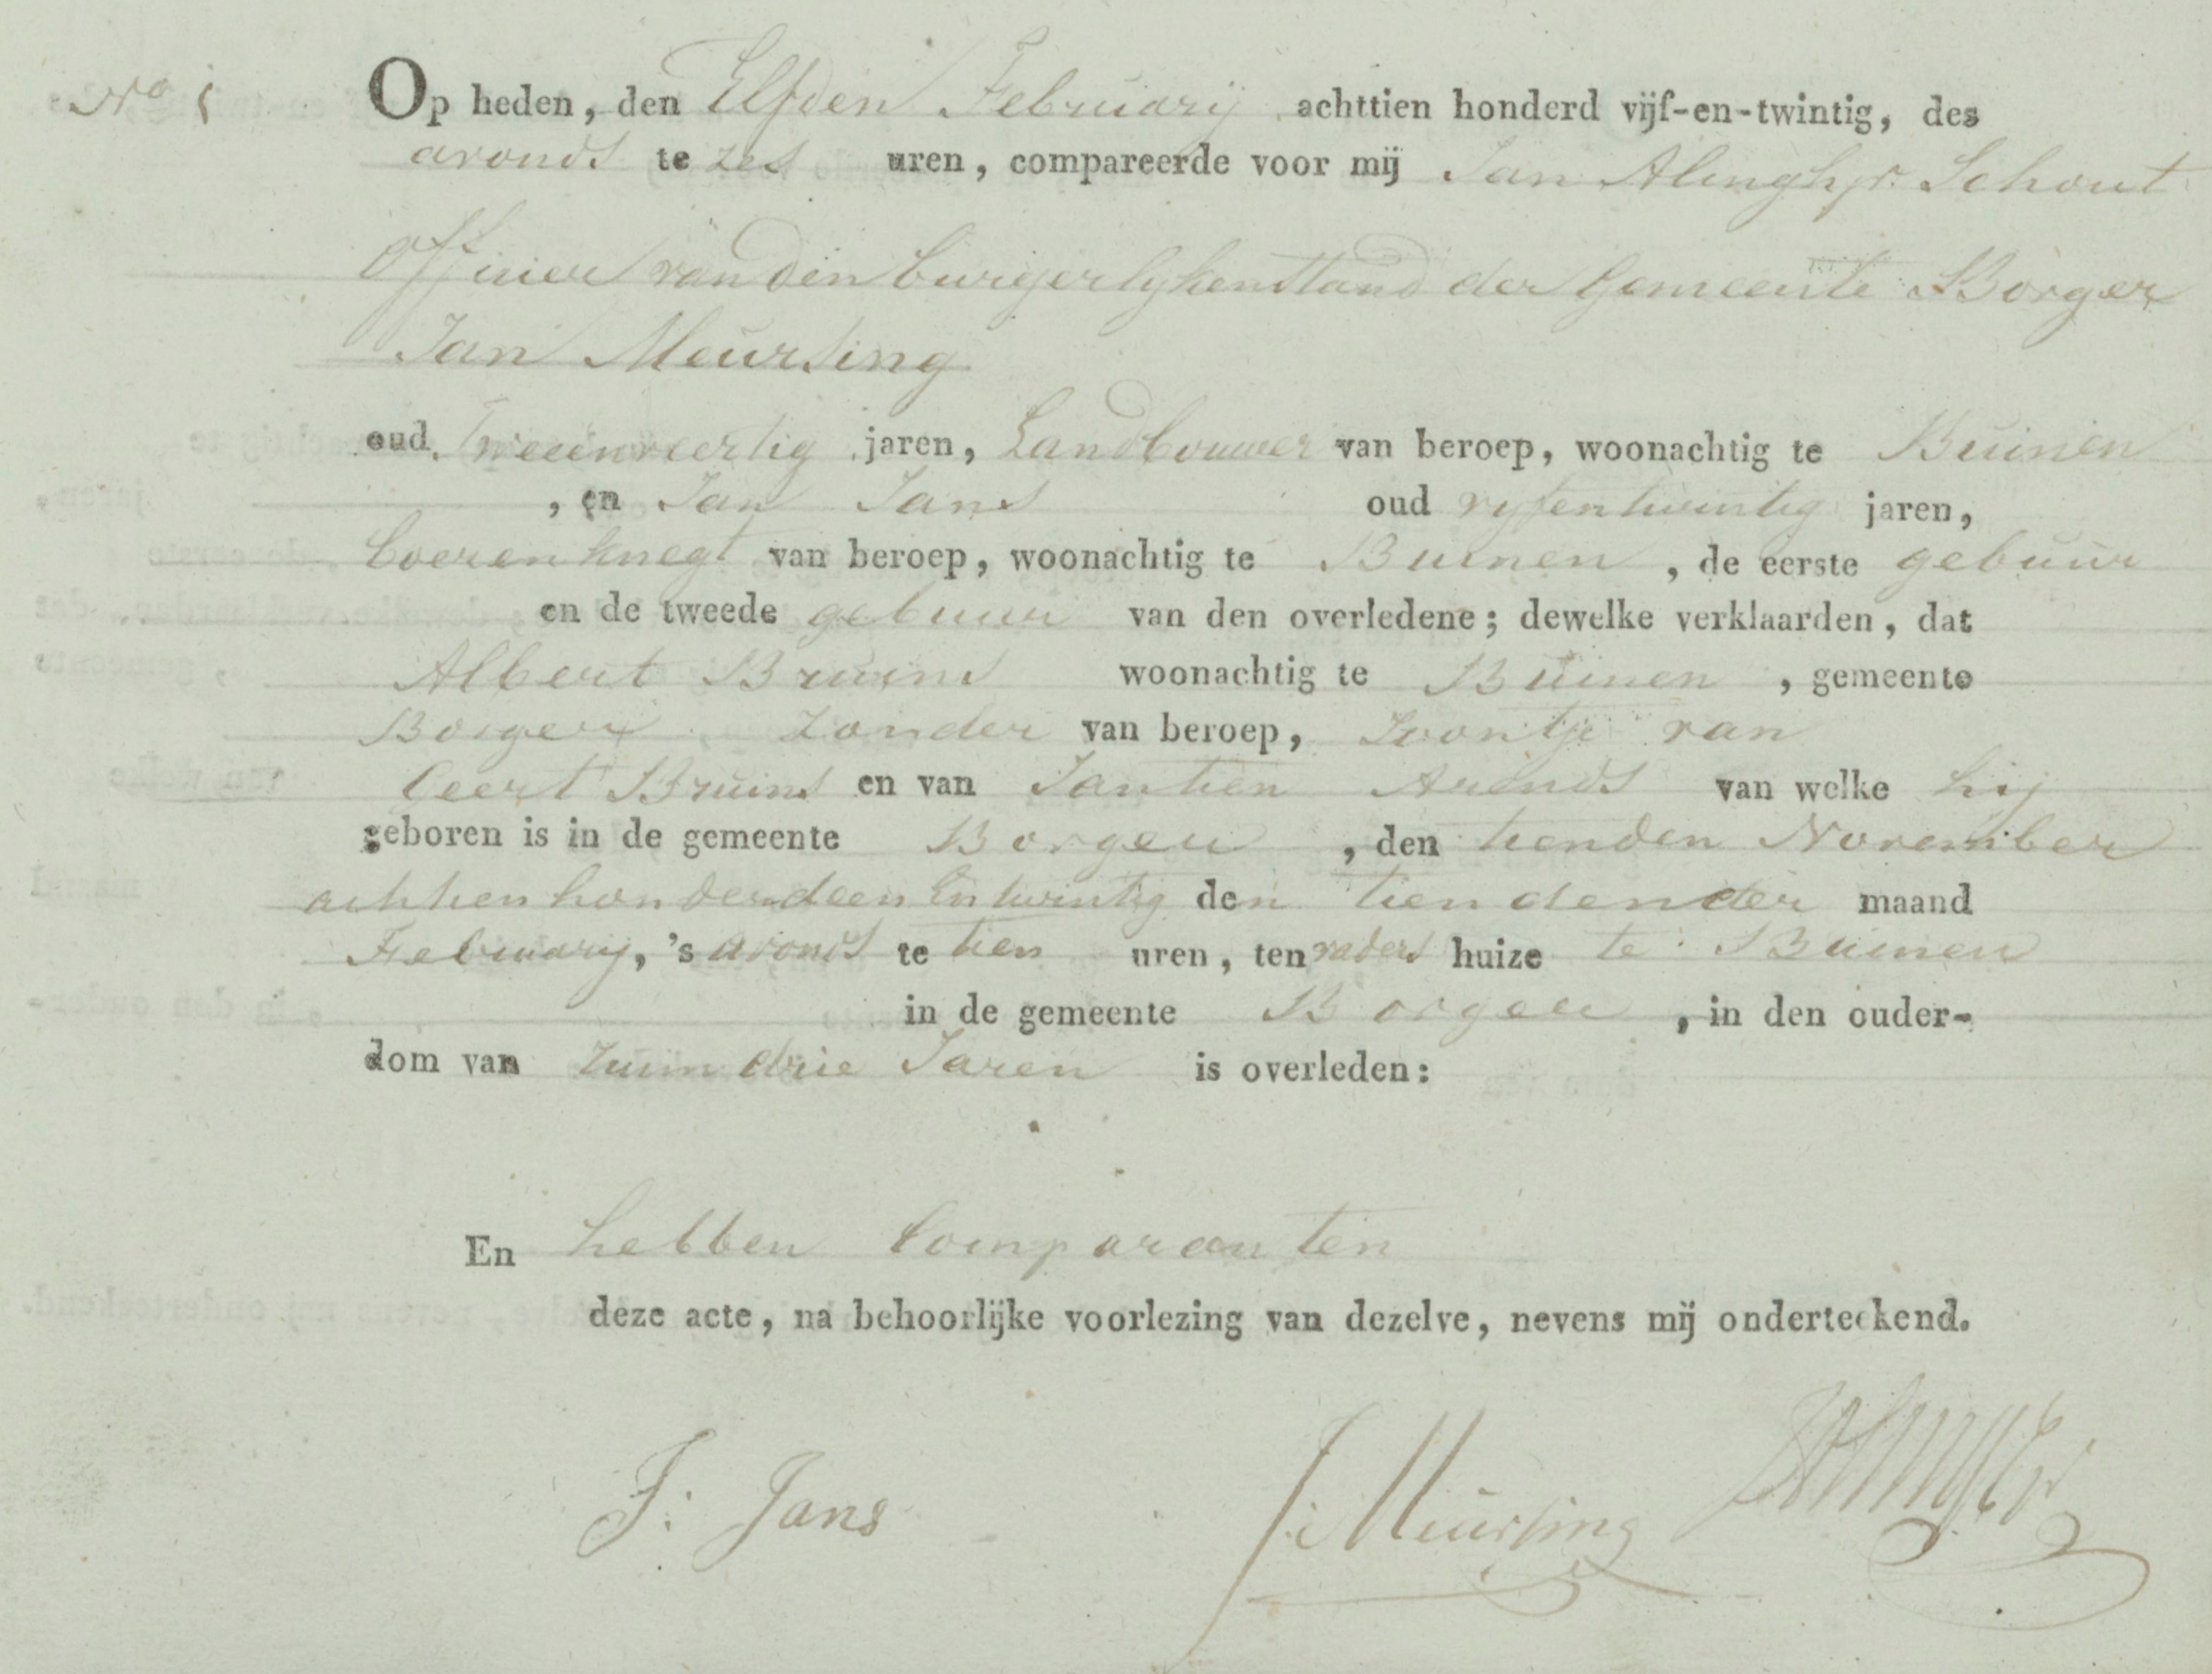 No
Op heden, den Elfden Februarij achttien honderd vijf-en-twintig, des
avonds te zes uren, compareerde voor mij Jan Alingh jr. Schout
Officier van den burgerlyken stand der Gemeente Borger
Jan Meursing
oud Tweeenveertig jaren, Landbouwer van beroep, woonachtig te Buinen
, en Jan Jans oud vyfentwintig jaren,
boerenknegt van beroep, woonachtig te Buinen , de eerste gebuur
en de tweede gebuur van den overledene; dewelke verklaarden, dat
Albert Bruins woonachtig te Buinen , gemeente
Borger zonder van beroep, Zoontje van
Geert Bruins en van Jantien Arends van welke hij
geboren is in de gemeente Borger , den tienden November
achtienhonderdeen entwintig den tienden der maand
Februarij, 's avonds te tien uren, ten vaders huize te Buinen
in de gemeente Borger , in den ouder-
dom van ruim drie Jaren is overleden:
En hebben Comparanten
deze acte, na behoorlijke voorlezing van dezelve, nevens mij onderteekend.
J: Jans J: Meursing